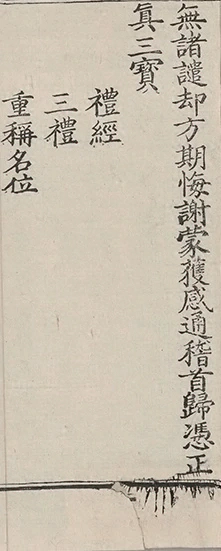 無諸譴却方期悔謝蒙獲感通稽首歸憑正
真三寶
禮經
三禮
重稱名位